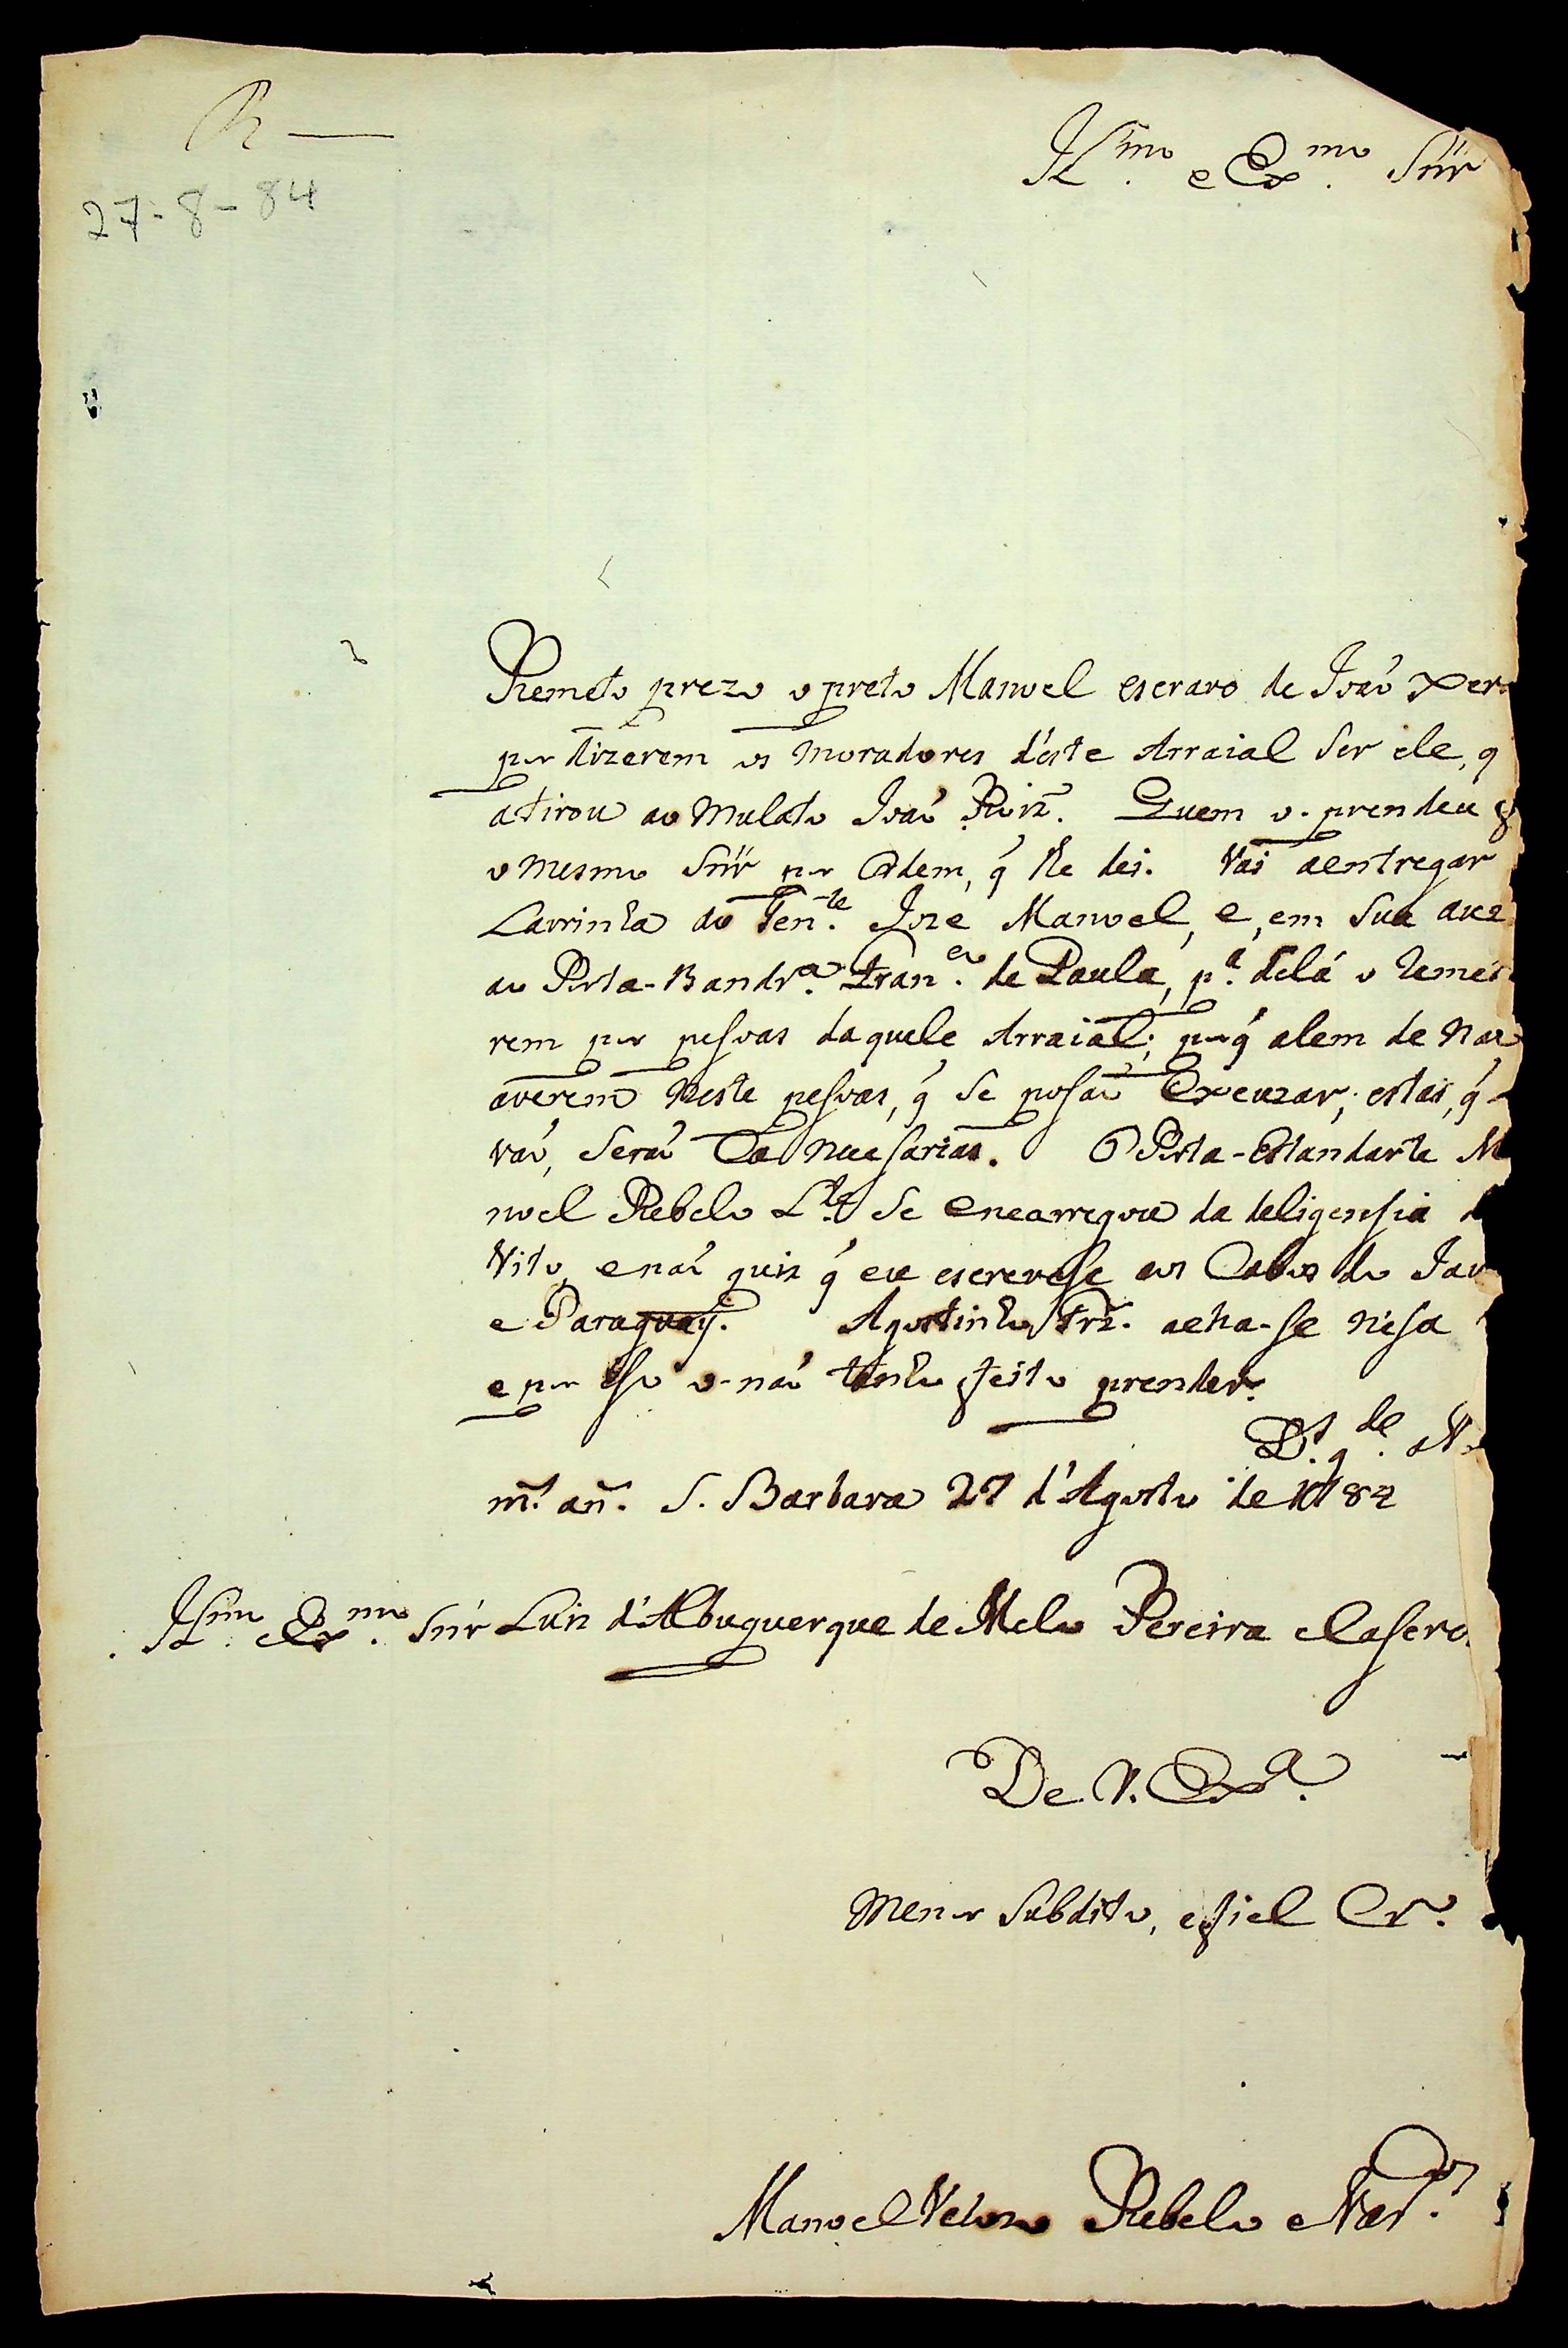 R
27-8-84
Il.mo e Ex.mo Snr̃
Remeto prezo o preto Manoel escravo de Joaõ
por dizerem os moradores d'este Arraial ser ele, q
atirou ao Mulato Joaõ Roiz̃. Quem o-prendeu
o mesmo Snr̃ por Ordem, q̃ lhe dei. Vai aentregar
Lavrinha ao Ten.te Joze Manoel, e, em sua auz
ao Porta-Bandr.a Fran.co de Paula, p.a delá o remet
rem por pesoas daquele Arraial; porq̃ alem de naõ
averem neste pesoas, q̃ se posaõ Excuzar; estas, q̃
vaõ, seraõ Ca necesarias. O Porta-Estandarte M
noel Rebelo L.te se encarregou da deligensia d
Vito, enaõ quiz q̃ eu escrevese aos Cabos do Jau
e Paraguay. Agostinho Frz̃. acha-se nesa
e por iso o-naõ tenho feito prender.
D.s g.de
m.s an̄.s S. Barbara 27 d'Agosto de 1784
Il.mo Ex.mo Snr̃ Luiz d'Albuquerque de Melo Pereira eCasere
De V. Ex.a
Menor Subdito, efiel Cr.o
Manoel Velozo Rebelo eVas.los